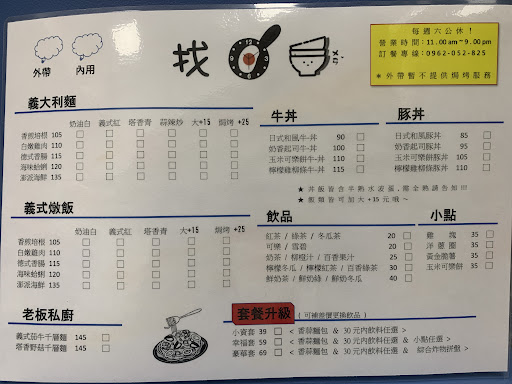 外帶 內用
找
每週六公休！
營業時間：11.00am~9.00pm
訂餐專線：0962-052-825
＊外帶暫不提供焗烤服務
義大利麵
奶油白 義式紅 塔香青 蒜辣炒 大+15 焗烤+25
香煎培根 105 □ □ □ □ □ □
白嫩雞肉 110 □ □ □ □ □ □
德式香腸 115 □ □ □ □ □ □
海味蛤蜊 120 □ □ □ □ □ □
澎派海鮮 135 □ □ □ □ □ □
牛丼
日式和風牛丼 90 □
奶香起司牛丼 100 □
玉米可樂餅牛丼 110 □
檸檬雞柳條牛丼 115 □
豚丼
日式和風豚丼 85 □
奶香起司豚丼 95 □
玉米可樂餅豚丼 105 □
檸檬雞柳條豚丼 110 □
＊丼飯皆含半熟水波蛋，需全熟請告知!!!
＊飯類皆可加大+15元哦～
義式燉飯
奶油白 義式紅 塔香青 大+15 焗烤+25
香煎培根 105 □ □ □ □ □
白嫩雞肉 110 □ □ □ □ □
德式香腸 115 □ □ □ □ □
海味蛤蜊 120 □ □ □ □ □
澎派海鮮 135 □ □ □ □ □
飲品
紅茶 / 綠茶 / 冬瓜茶 20 □
可樂 / 雪碧 20 □
奶茶 / 柳橙汁 / 百香果汁 25 □
檸檬冬瓜 / 檸檬紅茶 / 百香綠茶 30 □
鮮奶茶 / 鮮奶綠 / 鮮奶冬瓜 40 □
小點
雞塊 35 □
洋蔥圈 35 □
黃金脆薯 35 □
玉米可樂餅 35 □
老板私廚
義式茄牛千層麵 145 □
塔香野菇千層麵 145 □
套餐升級 ( 可補差價更換飲品 )
小資套 39 □ < 香蒜麵包 & 30元內飲料任選 >
幸福套 59 □ < 香蒜麵包 & 30元內飲料任選 & 小點任選 >
豪華套 69 □ < 香蒜麵包 & 30元內飲料任選 & 綜合炸物拼盤 >